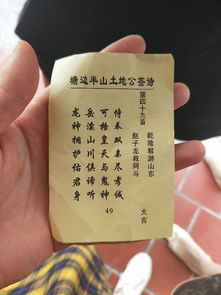 塘边半山土地公签诗
第四十九首
乾隆君游山东
赵子龙救阿斗
大吉
侍奉双亲尽孝诚
可格皇天与鬼神
岳渎山川俱谛听
龙神拥护佑君身
49